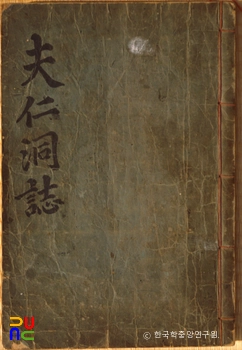 夫仁洞誌
© 한국학중앙연구원